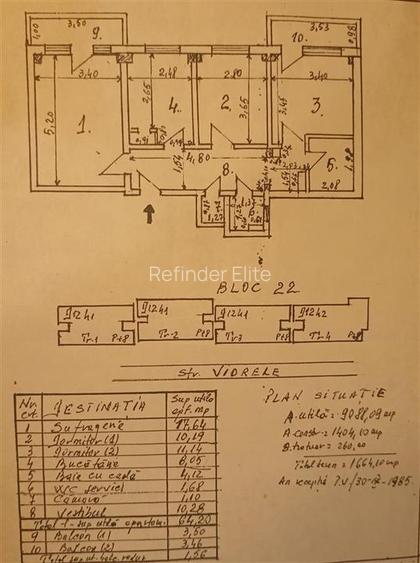 3,50
1,00
9.
3,53
10.
0,98
3,40
2,48
2,80
3,40
5,20
2,65
3,65
3,45
1.
4.
2.
3.
4,80
1,54
8.
5.
1,98
2,08
1,27
Refinder Elite
BLOC 22
J1241
J1241
J1241
J1242
Tr.1 P+8
Tr-2 P+8
Tr3 P+8
Tr.4 P+8
Str. VIDRELE
Nr. crt. DESTINATIA Sup utila apt. mp
1 Sufragerie 17,64
2 Dormitor (1) 10,19
3 Dormitor (2) 11,14
4 Bucătărie 8,05
5 Baie cu cadă 4,12
6 WC serviciu 1,68
7 Cămară 1,10
8 Vestibul 10,28
Total 1 - sup utilă apartam. 64,20
9 Balcon (1) 3,50
10 Balcon (2) 3,46
1,56
PLAN SITUATIE
A.utilă = 9088,09 mp
A.constr = 1404,10 mp
S.trotuar = 260,00
Total teren = 1664,10 mp
An recepție P.V./30-12-1985